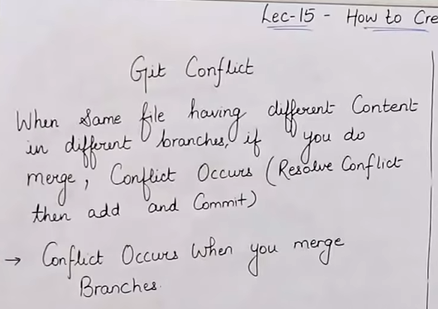 Lec-15 - How to Cre
Git Conflict
When Same file having different Content
in different branches, if you do
merge, Conflict Occurs (Resolve Conflict
then add and Commit)
→ Conflict Occurs When you merge
Branches.